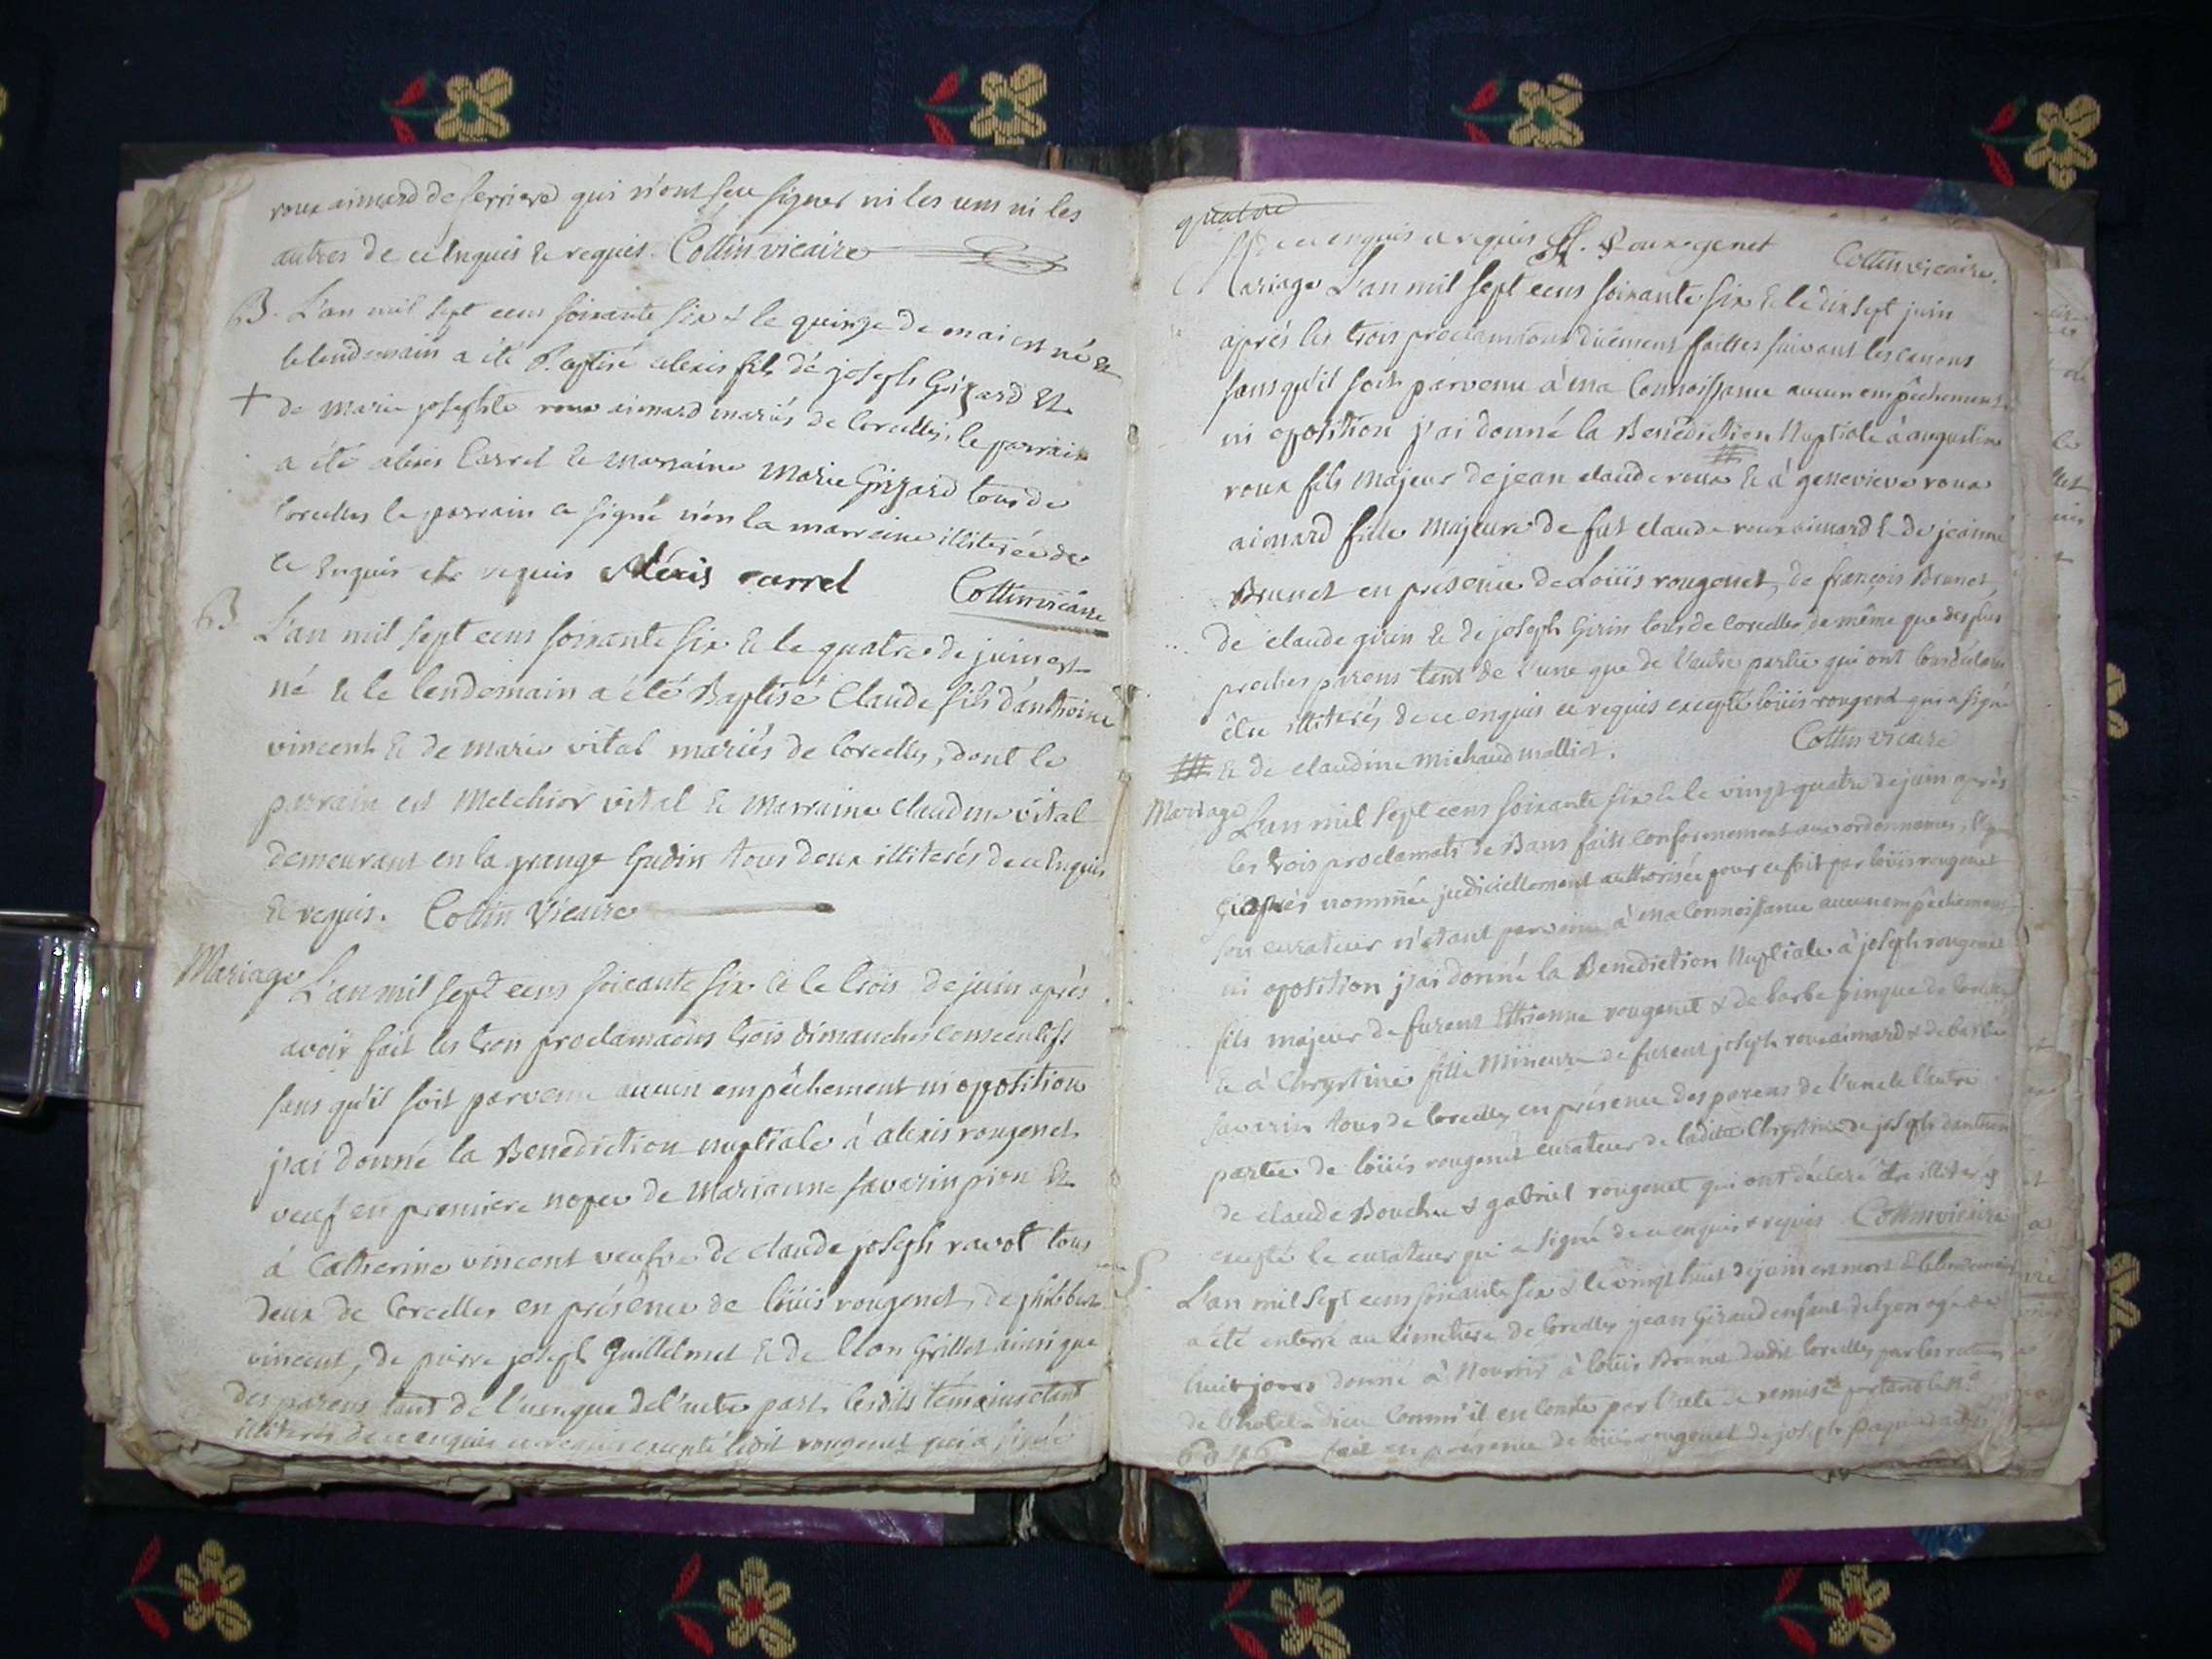 roux aimard de ferriere qui n'ont seu signer ni les uns ni les
autres de ce Enquis & requis. Cottin vicaire
B. L'an mil sept cens soixante six & le quinze de mai est né &
le lendemain a été Baptisé alexis fils de joseph Grizard &
+ de marie josephte roux aimard mariés de Corcelles, le parrain
a été alexis Carrel & marraine marie Grizard tous de
Corcelles le parrain a signé non la marraine illiterée de
ce Enquis et requis Aléxis carrel Cottin vicaire
B L'an mil sept cens soixante six & le quatre de juin est
né & le lendemain a été Baptisé Claude fils d'anthoine
vincent & de marie vital mariés de Corcelles, dont le
parrain est Melchior vital & Marraine Claudine vital
demeurant en la grange Gudin tous deux illiterés de ce Enquis
& requis. Cottin Vicaire
Mariage L'an mil sept cens soixante six & le trois de juin après
avoir fait les trois proclamaons trois dimanches consecutifs
sans qu'il soit parvenu aucun empêchement ni opposition
j'ai donné la Benediction nuptiale à alexis rougenet
veuf en premiere nopce de Marianne savarin pion &
à Catherine vincent veufve de claude joseph ravot tous
deux de Corcelles en présence de loüis rougenet, de philibert
vincent, de pierre joseph Guillelmet & de Grillet ainsi que
des parens tant de l'une que de l'autre part lesdits témoins étant
illiterés de ce enquis et requis excepté ledit rougenet qui a signé
quatre
de ce enquis et requis Rougenet Cottin vicaire.
Mariage L'an mil sept cens soixante six & le dix sept juin
après les trois proclamaons düement faittes suivant les canons
sans qu'il soit parvenu à ma Connoissance aucun empêchement
ni opotition j'ai donné la Benediction Nuptiale à augustin
roux fils majeur de jean claude roux # & à genevieve roux
aimard fille Majeure de fut claude roux aimard & de jeanne
Brunet en presence de Loüis rougenet, de françois Brunet
de claude girin & de joseph Girin tous de Corcelles de même que des plus
proches parens tant de l'une que de l'autre partie qui ont tous déclaré
être illiterés de ce enquis et requis excepté loüis rougenet qui a signé
Cottin vicaire
# & de claudine michaud malliet.
Mariage L'an mil sept cens soixante six & le vingt quatre de juin après
les trois proclamats de Bans faits conformement aux ordonnances,
ci après nommée judiciellement authorisée pour ce fait par loüis rougenet
son curateur n'étant parvenu à ma Connoissance aucun empêchement
ni opotition j'ai donné la Benediction Nuptiale à joseph rougenet
fils majeur de furent Etienne rougenet & de barbe pingue de Corcelles
& à Chrystine fille Mineure de furent joseph roux aimard & de barbe
savarin tous de Corcelles en présence des parens de l'une & l'autre
partie de loüis rougenet curateur de ladite Chrystine de joseph
de claude Bouchu & gabriel rougenet qui ont declaré être illiterés
excepté le curateur qui a signé de ce enquis & requis Cottin vicaire
S. L'an mil sept cens soixante six & le vingt huit de juin est mort & le lendemain
a été enterré au cimetiere de Corcelles jean Giraud enfant de lyon agé de
huit jours donné à Nourrir à loüis Brunet dudit Corcelles par les recteurs
de l'hotel-dieu Comm'il en Conste par l'acte de remise portant le N.o
fait en présence de loüis rougenet de joseph